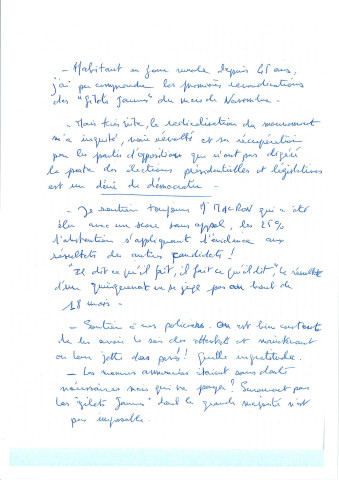 - Habitant en zone rurale depuis 45 ans,
j'ai pu comprendre les premières revendications
des "gilets jaunes" du mois de Novembre.
- Mais très vite, la radicalisation du mouvement
m'a inquiété, voire révolté et sa récupération
par les partis d'opposition qui n'ont pas digéré
la perte des élections présidentielles et législatives
est un déni de démocratie -
- Je soutien toujours E MACRON qui a été
élu avec un score sans appel, les 25%
d'abstention s'appliquant d'évidence aux
résultats des autres candidats !
"Il dit ce qu'il fait, il fait ce qu'il dit", le résultat
d'un quinquennat ne se juge pas au bout de
18 mois -
- Soutien à nos policiers. On est bien content
de les avoir le soir des attentats et maintenant
on leur jette des pavés ! Quelle ingratitude.
- Les mesures annoncées étaient sans doute
nécessaires mais qui va payer ? Surement pas
les "gilets jaunes" dont la grande majorité n'est
pas imposable.